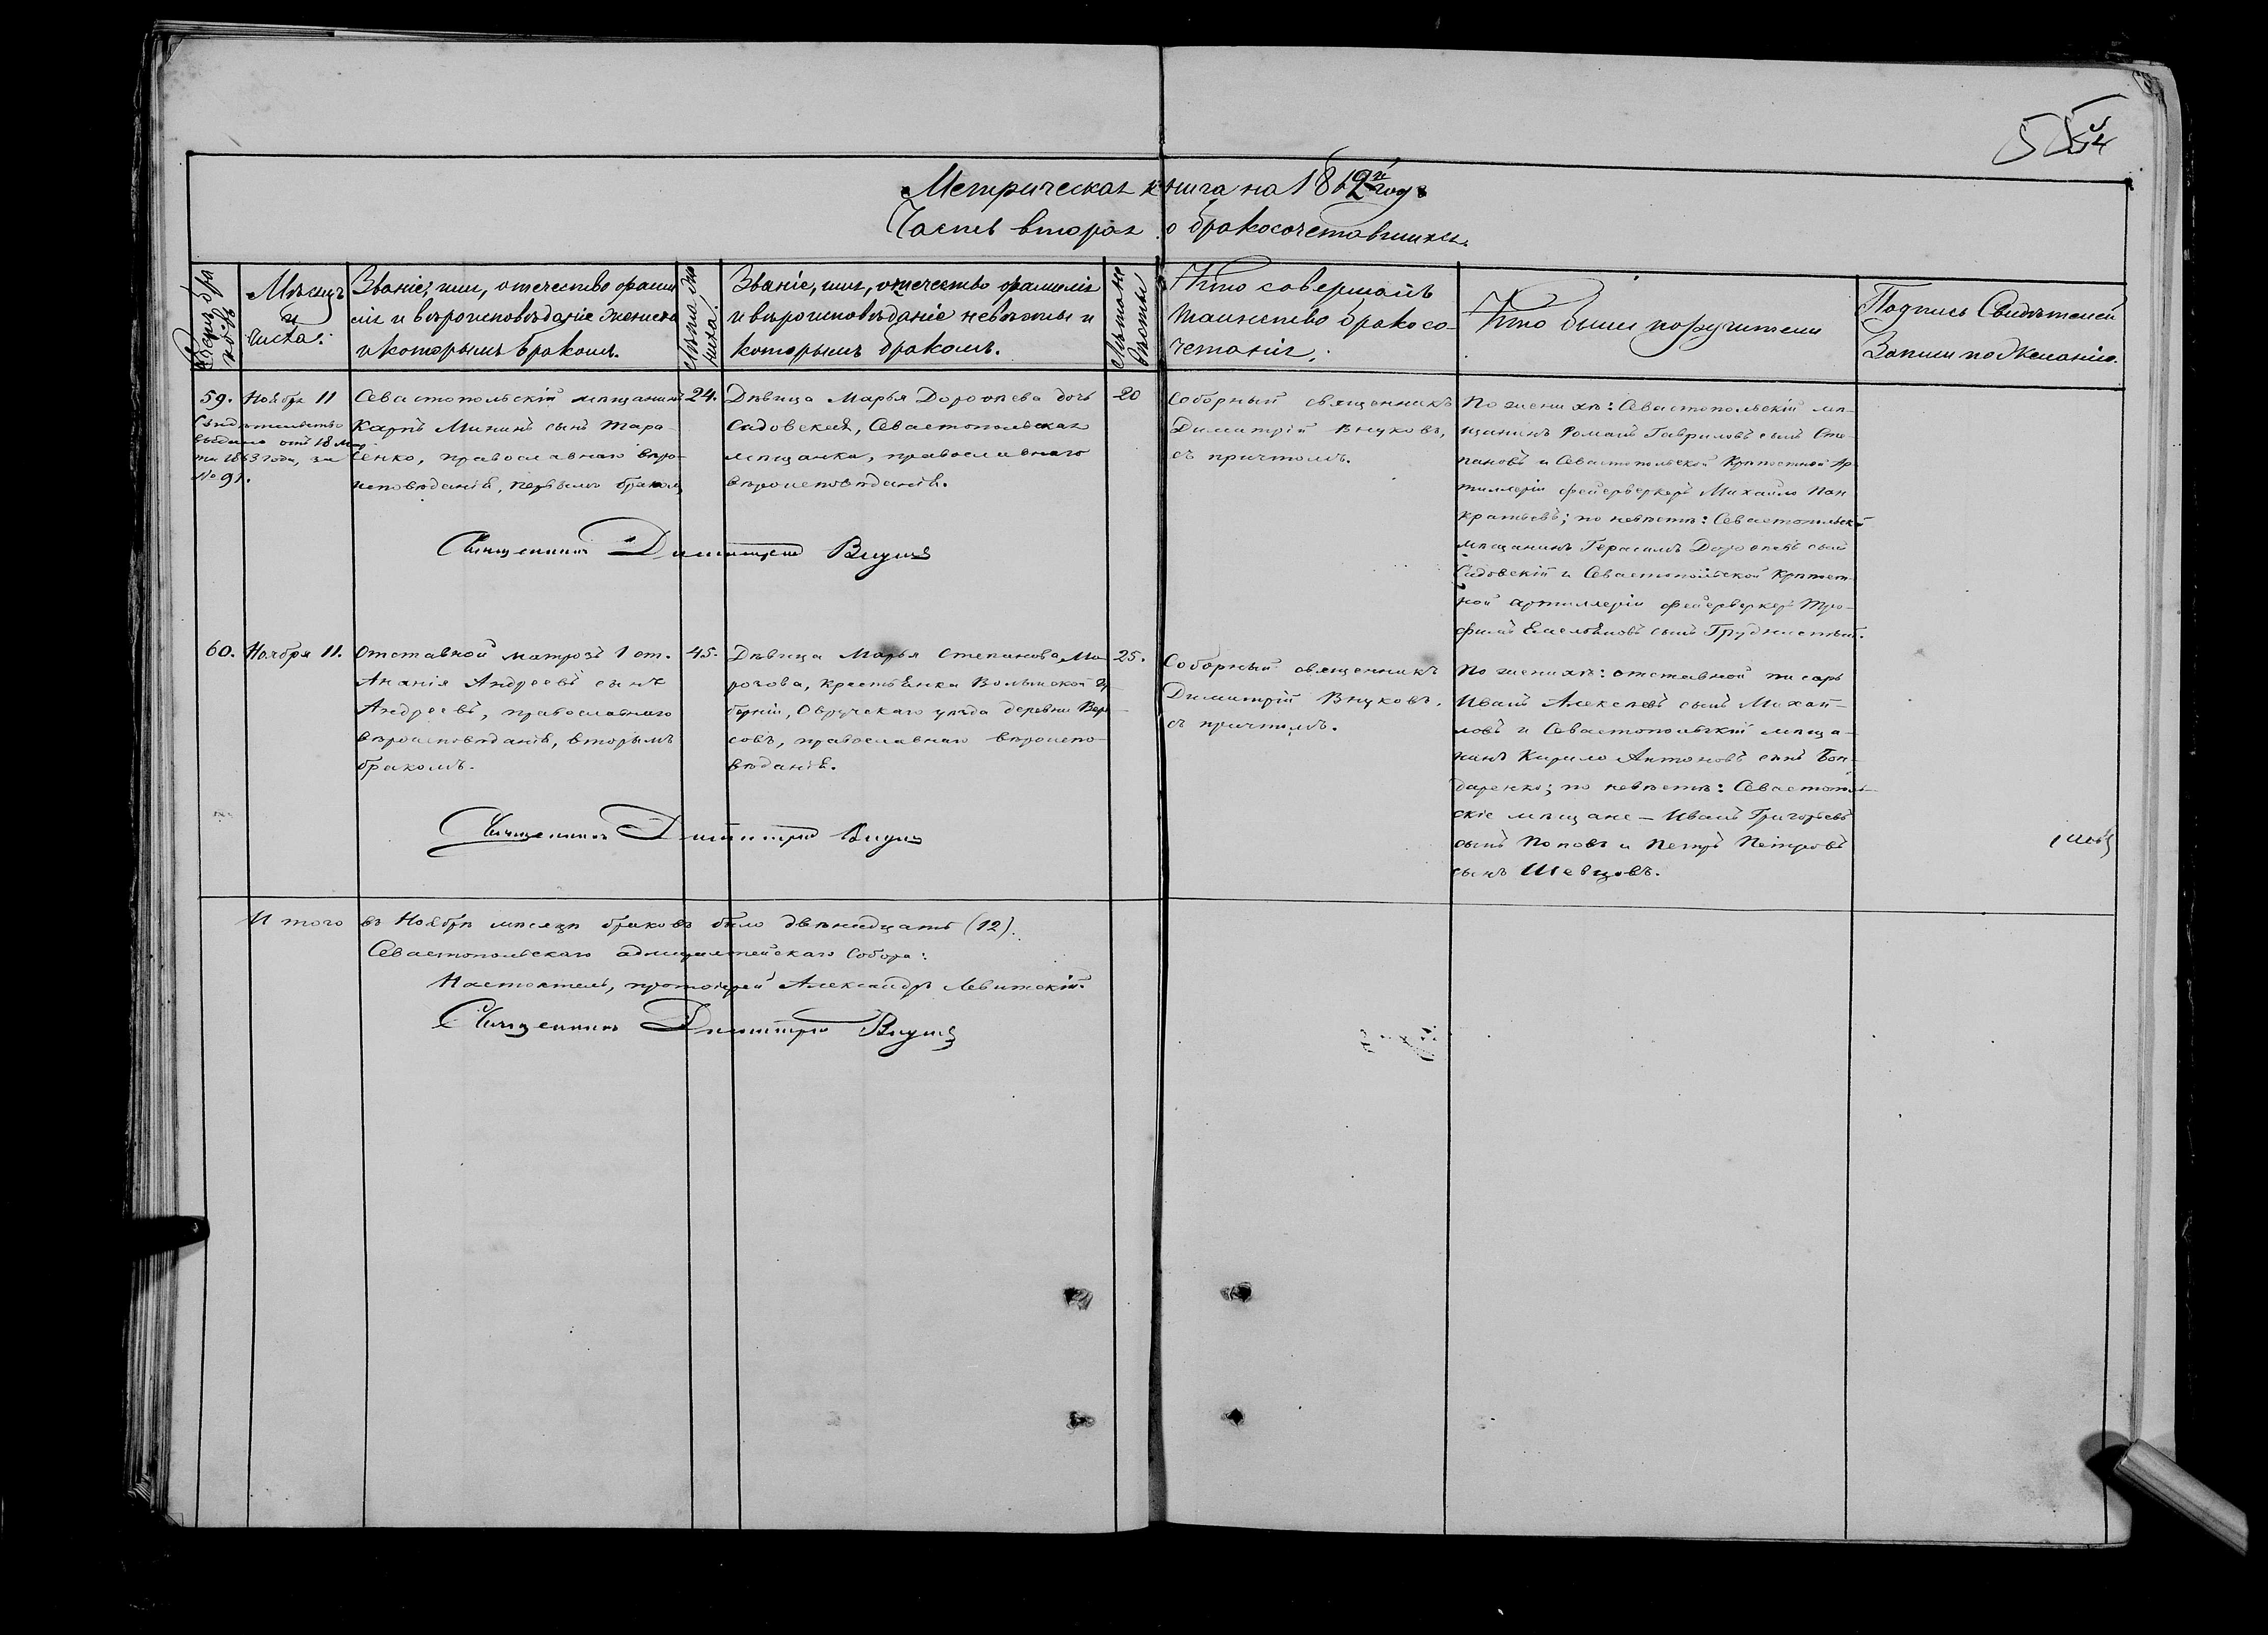 Метрическая книга на 1862й годъ
Часть вторая о бракосочетавшихся.
Счетъ бра
ковъ
Мѣсяцъ
и
числа.
Званіе, имя, отечество фами
лія и вѣроисповѣданіе жениха
и которымъ бракомъ.
Лѣта же
ниха.
Званіе, имя, отечество фамилія
и вѣроисповѣданіе невѣсты и
которымъ бракомъ.
Лѣта не
вѣсты
Кто совершалъ
таинство бракосо-
четанія.
Кто были поручители
Подпись Свидѣтелей
Записи по желанію.
59. Ноября 11
Свидѣтельство
выдано отъ 18 Мар
та 1863 года, за
№ 91.
Севастопольскій мѣщанинъ
Карпъ Мининъ сынъ Тара-
сенко, православнаго вѣро-
исповѣданія, первымъ бракомъ
24.
Дѣвица Марья Дороѳеева дочь
Садовская, Севастопольская
мѣщанка, православнаго
вѣроисповѣданія.
20
Соборный священникъ
Димитрій Внуковъ,
съ причтомъ.
По женихѣ: Севастопольскій мѣ-
щанинъ Романъ Гавриловъ сынъ Сте-
пановъ и Севастопольской Крѣпостной Ар
тиллеріи фейерверкеръ Михайло Пан
кратьевъ; по невѣстѣ: Севастопольскій
мѣщанинъ Герасимъ Дороѳеевъ сынъ
Садовскій и Севастопольской Крѣпост
ной артиллеріи фейерверкеръ Тро-
фимъ Емельяновъ сынъ
Священникъ Димитрій Внуковъ
60. Ноября 11.
Отставной матрозъ 1 ст.
Ананія Андреевъ сынъ
Андреевъ, православнаго
вѣроисповѣданія, вторымъ
бракомъ.
45.
Дѣвица Марья Степанова Мо
розова, крестьянка Волынской гу
берніи, Овручскаго уѣзда деревни
православнаго вѣроиспо-
вѣданія.
25.
Соборный священникъ
Димитрій Внуковъ,
съ причтомъ.
По женихѣ: отставной писарь
Иванъ Алексѣевъ сынъ Михай-
ловъ и Севастопольскій мѣща-
нинъ Кирило Антоновъ сынъ Бон-
даренко; по невѣстѣ: Севастополь-
скіе мѣщане – Иванъ Григорьевъ
сынъ Поповъ и Петръ Петровъ
сынъ Шевцовъ.
Священникъ Димитрій Внуковъ
Итого въ Ноябрѣ мѣсяцѣ браковъ было двѣнадцать (12).
Севастопольскаго адмиралтейскаго Собора:
Настоятель, протоіерей Александръ Левитскій.
Священникъ Димитрій Внуковъ